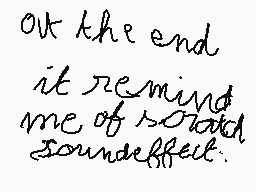 at the end
it remind
me of scratch
soundeffect.